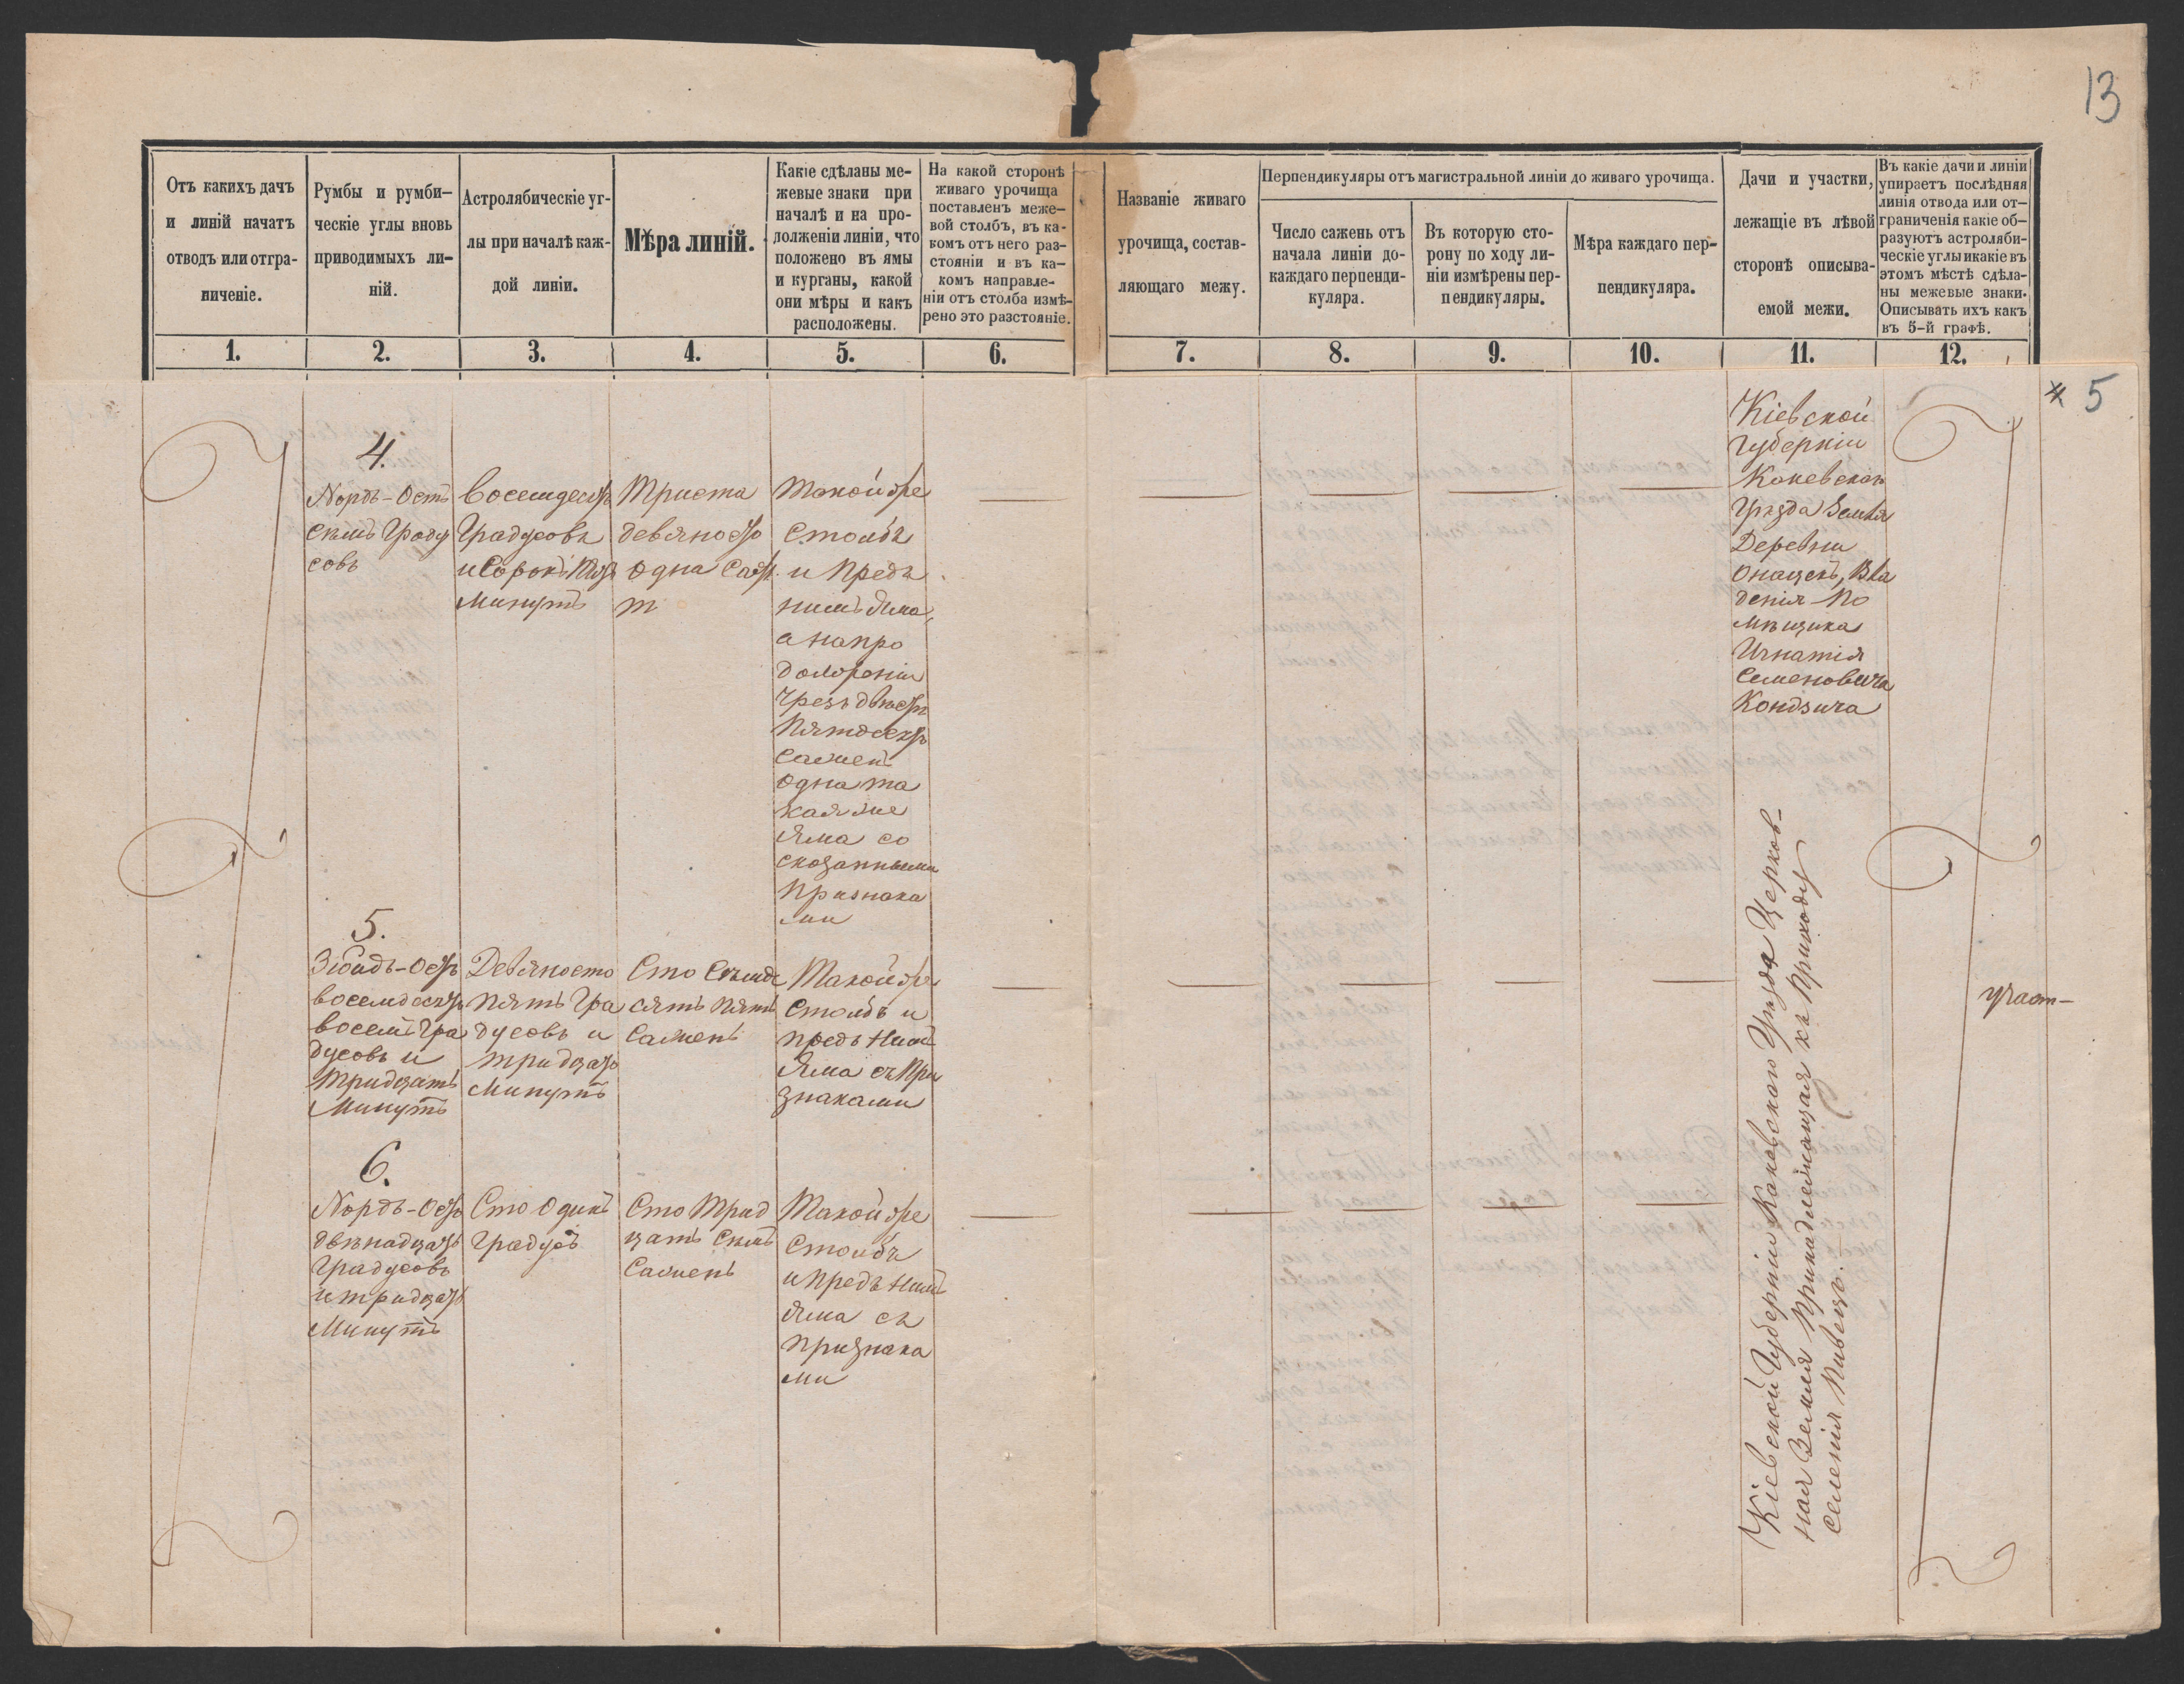 13
Отъ какихъ дачъ
и линій начатъ
отводъ или отгра-
ниченіе.
Румбы и румби-
ческіе углы вновь
приводимыхъ ли-
ній.
Астролябическіе уг-
лы при началѣ каж-
дой линіи.
Мѣра линій.
Какіе сдѣланы ме-
жевые знаки при
началѣ и на про-
долженіи линіи, что
положено въ ямы
и курганы, какой
они мѣры и какъ
расположены.
На какой сторонѣ
живаго урочища
поставленъ меже-
вой столбъ, въ ка-
комъ отъ него раз-
стояніи и въ ка-
комъ направле-
ніи отъ столба измѣ-
рено это разстояніе.
Названіе живаго
урочища, состав-
ляющаго межу.
Перпендикуляры отъ магистральной линіи до живаго урочища.
Число сажень отъ
начала линіи до
каждаго перпенди-
куляра.
Въ которую сто-
рону по ходу ли-
ніи измѣрены пер-
пендикуляры.
Мѣра каждаго пер-
пендикуляра.
Дачи и участки,
лежащіе въ лѣвой
сторонѣ описыва-
емой межи.
Въ какіе дачи и линіи
упираетъ послѣдняя
линія отвода или от-
граниченія какіе об-
разуютъ астроляби-
ческіе углы и какіе въ
этомъ мѣстѣ сдѣла-
ны межевые знаки.
Описывать ихъ какъ
въ 5-й графѣ.
1. 2. 3. 4. 5. 6. 7. 8. 9. 10. 11. 12.
5
4.
Нордъ-Остъ
семь Граду
совъ
Восемдесятъ
Градусовъ
и Сорокъ Пять
Минутъ
Триста
девяносто
одна Саже
Такой же
Столбъ
и Предъ
нимъ Яма,
а на про
долженіи
Чрезъ двѣсти
Пятдесятъ
Сажень
одна та
кая же
Яма со
сказанными
Признака
ми
Кіевской
Губерніи
Каневскаго
Уѣзда Земля
Деревни
Онацекъ, Вла
денія По
мѣщика
Игнатія
Семеновича
Кондзича
5.
Зюйдъ-Остъ
восемдесятъ
восемь Гра
дусовъ и
Тридцать
Минутъ
Девяносто
Пять Гра
дусовъ и
тридцать
Минутъ
Сто Семьде
сять Пять
Сажень
Такой же
Столбъ и
предъ Нимъ
Яма съ При
знаками
6.
Нордъ-Остъ
двѣнадцать
Градусовъ
и тридцать
Минутъ
Сто Одинъ
Градусъ
Сто Трид
цать Семь
Сажень
Такой же
Столбъ
и предъ Нимъ
Яма съ
Признака
ми
Кіевской Губерніи Каневскаго Уѣзда Церков-
ная Земля Принадлежащая къ Приходу
Селенія Пивецъ.
участ-